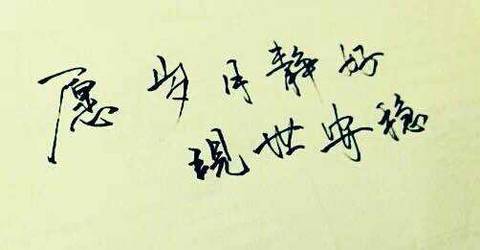 愿岁月静好
现世安稳